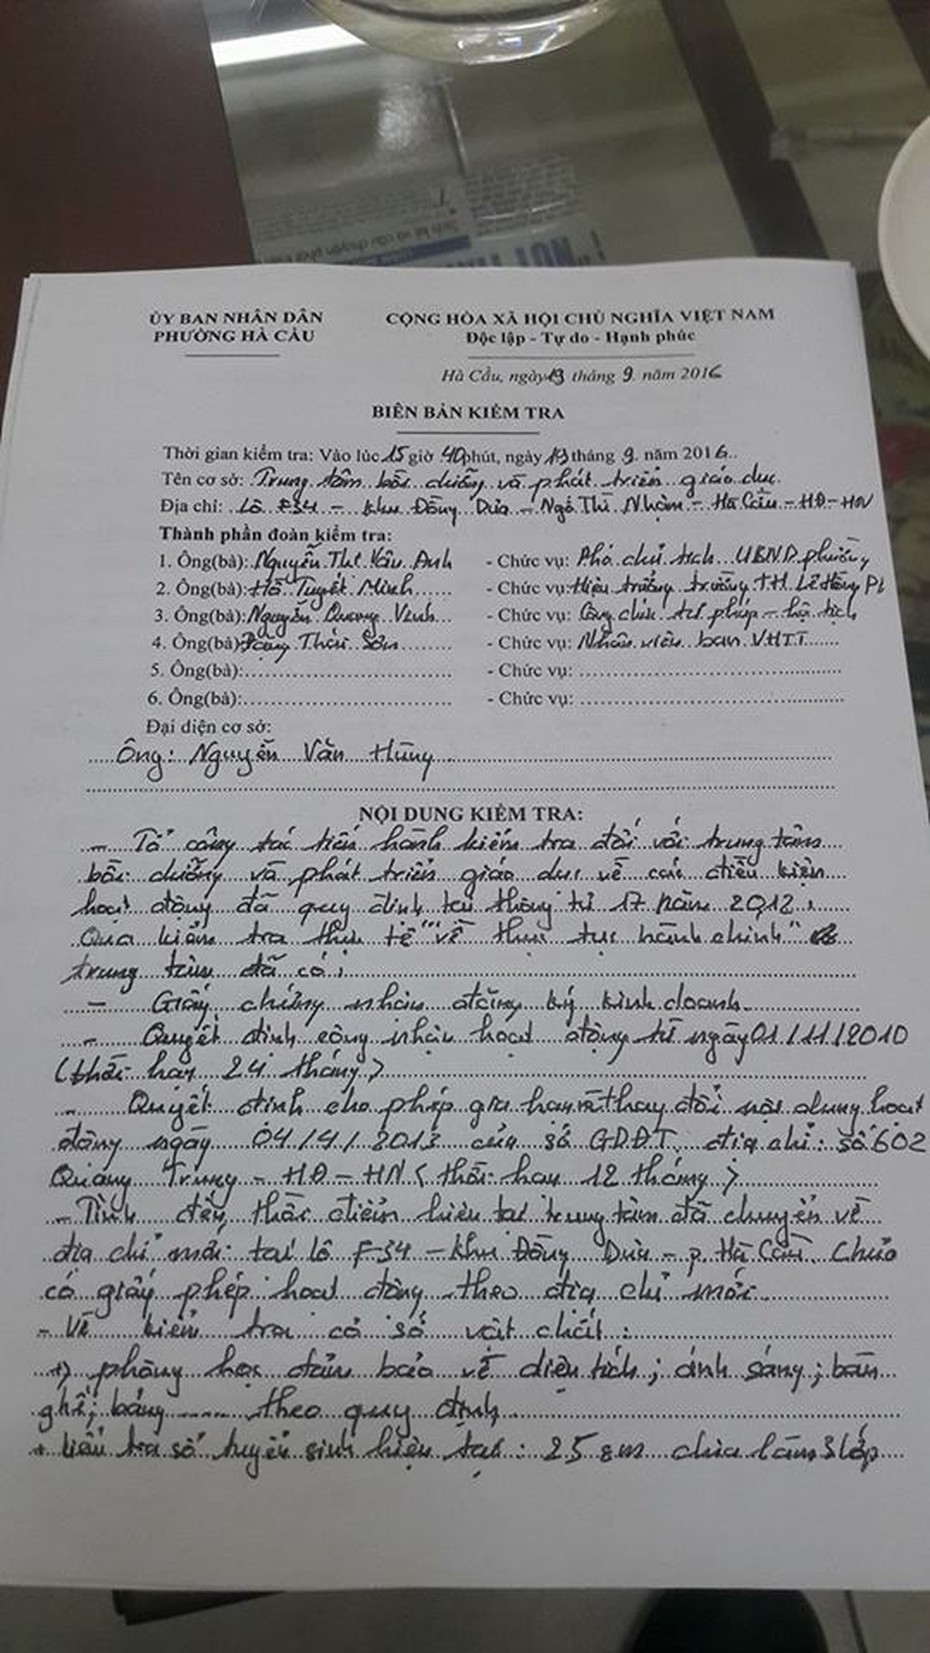 ỦY BAN NHÂN DÂN
PHƯỜNG HÀ CẦU
CỘNG HÒA XÃ HỘI CHỦ NGHĨA VIỆT NAM
Độc lập - Tự do - Hạnh phúc
Hà Cầu, ngày 19 tháng 9. năm 2016
BIÊN BẢN KIỂM TRA
Thời gian kiểm tra: Vào lúc 15 giờ 40 phút, ngày 19 tháng 9. năm 2016..
Tên cơ sở: Trung tâm bồi dưỡng và phát triển giáo dục
Địa chỉ: Lô F34 - Khu Đồng Dưa - Ngô Thì Nhậm - Hà Cầu - HĐ - HN
Thành phần đoàn kiểm tra:
1. Ông(bà): Nguyễn Thị Vân Anh - Chức vụ: Phó chủ tịch UBND phường
2. Ông(bà): Hồ Tuyết Minh - Chức vụ: Hiệu trưởng trường TH Lê Hồng P
3. Ông(bà): Nguyễn Quang Vinh - Chức vụ: Công chức tư pháp - hộ tịch
4. Ông(bà): Đặng Thái Sơn - Chức vụ: Nhân viên ban VHTT
5. Ông(bà): - Chức vụ:
6. Ông(bà): - Chức vụ:
Đại diện cơ sở:
Ông: Nguyễn Văn Hùng
NỘI DUNG KIỂM TRA:
- Tổ công tác tiến hành kiểm tra đối với trung tâm
bồi dưỡng và phát triển giáo dục về các điều kiện
hoạt động đã quy định tại thông tư 17 năm 2012.
Qua kiểm tra thực tế "về thủ tục hành chính"
trung tâm đã có:
- Giấy chứng nhận đăng ký kinh doanh.
- Quyết định công nhận hoạt động từ ngày 01/11/2010
(thời hạn 24 tháng)
- Quyết định cho phép gia hạn và thay đổi nội dung hoạt
động ngày 04/4/2013 của sở GDĐT địa chỉ: số 602
Quang Trung - HĐ - HN (thời hạn 12 tháng)
- Tính đến thời điểm hiện tại trung tâm đã chuyển về
địa chỉ mới tại lô F34 - Khu Đồng Dưa - p. Hà Cầu. Chưa
có giấy phép hoạt động theo địa chỉ mới.
- Về kiểm tra cơ sở vật chất:
+) phòng học đảm bảo về diện tích; ánh sáng; bàn
ghế; bảng ..... theo quy định
+ kiểm tra số tuyển sinh hiện tại: 25 em chia làm 3 lớp